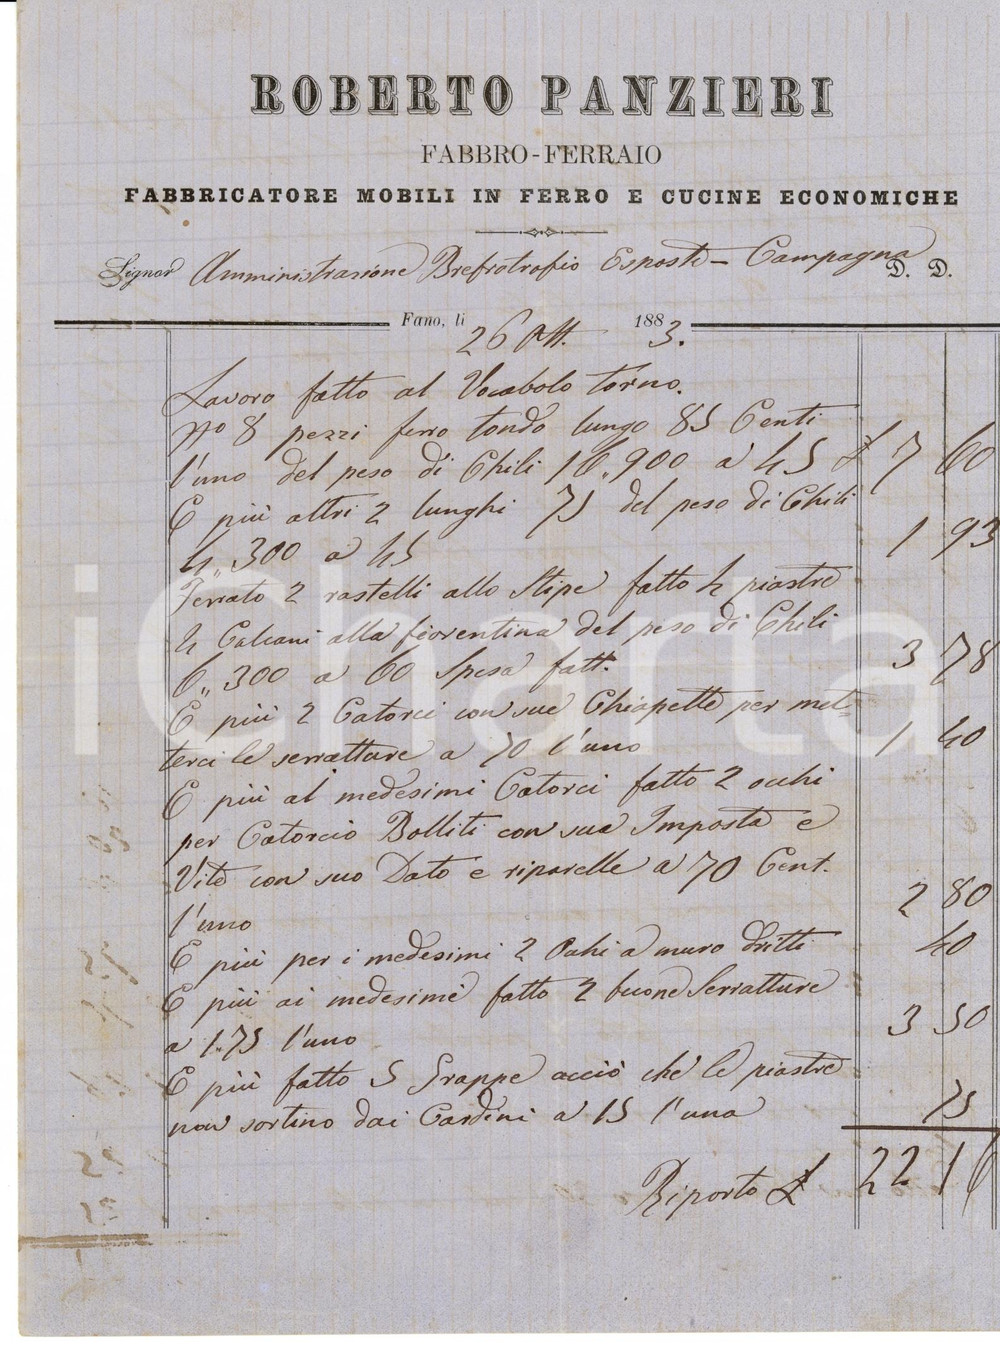 ROBERTO PANZIERI
FABBRO-FERRAIO
FABBRICATORE MOBILI IN FERRO E CUCINE ECONOMICHE
Signor Amministrazione Brefrotrofio Esposti - Campagna D. D.
Fano, li 26 Ott. 1883.
Lavoro fatto al Vocabolo torno.
No 8 pezzi ferro tondo lungo 85 Centi
l'uno del peso di Chili 16,900 a 45 £ 7 60
E più altri 2 lunghi 75 del peso di Chili
4,,300 a 45 1 93
Ferrato 2 rastelli allo Stipe fatto 4 piastre
4 Calcani alla fiorentina del peso di Chili
6,,300 a 60 Spesa fatt. 3 78
E più 2 Catorci con sue Chiapette per met=
terci le serratture a 70 l'uno 1 40
E più ai medesimi Catorci fatto 2 occhi
per Catorcio Bolliti con sua Imposta e
Vite con suo Dato e riparelle a 70 Cent.
l'uno 2 80
E più per i medesimi 2 Ochi a muro dritti 40
E più ai medesimi fatto 2 buone Serratture
a 1.75 l'uno 3 50
E più fatto 5 Grappe acciò che le piastre
non sortino dai Cardini a 15 l'una 75
Riporto £ 22 16
iCharta